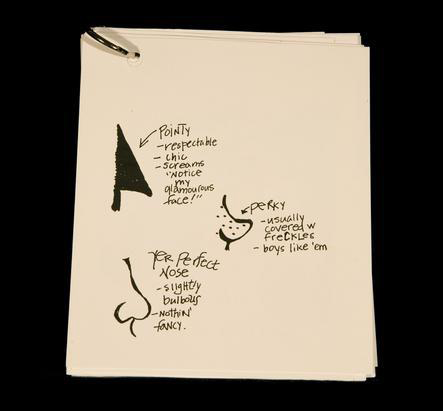 POINTY
-respectable
- chic
-screams
"Notice
my
glamourous
face!"
PERKY
-usually
covered w
FRECKLES
- boys like 'em
YER PERFECT
NOSE
-slightly
bulbous
-NOTHIN'
fancy.